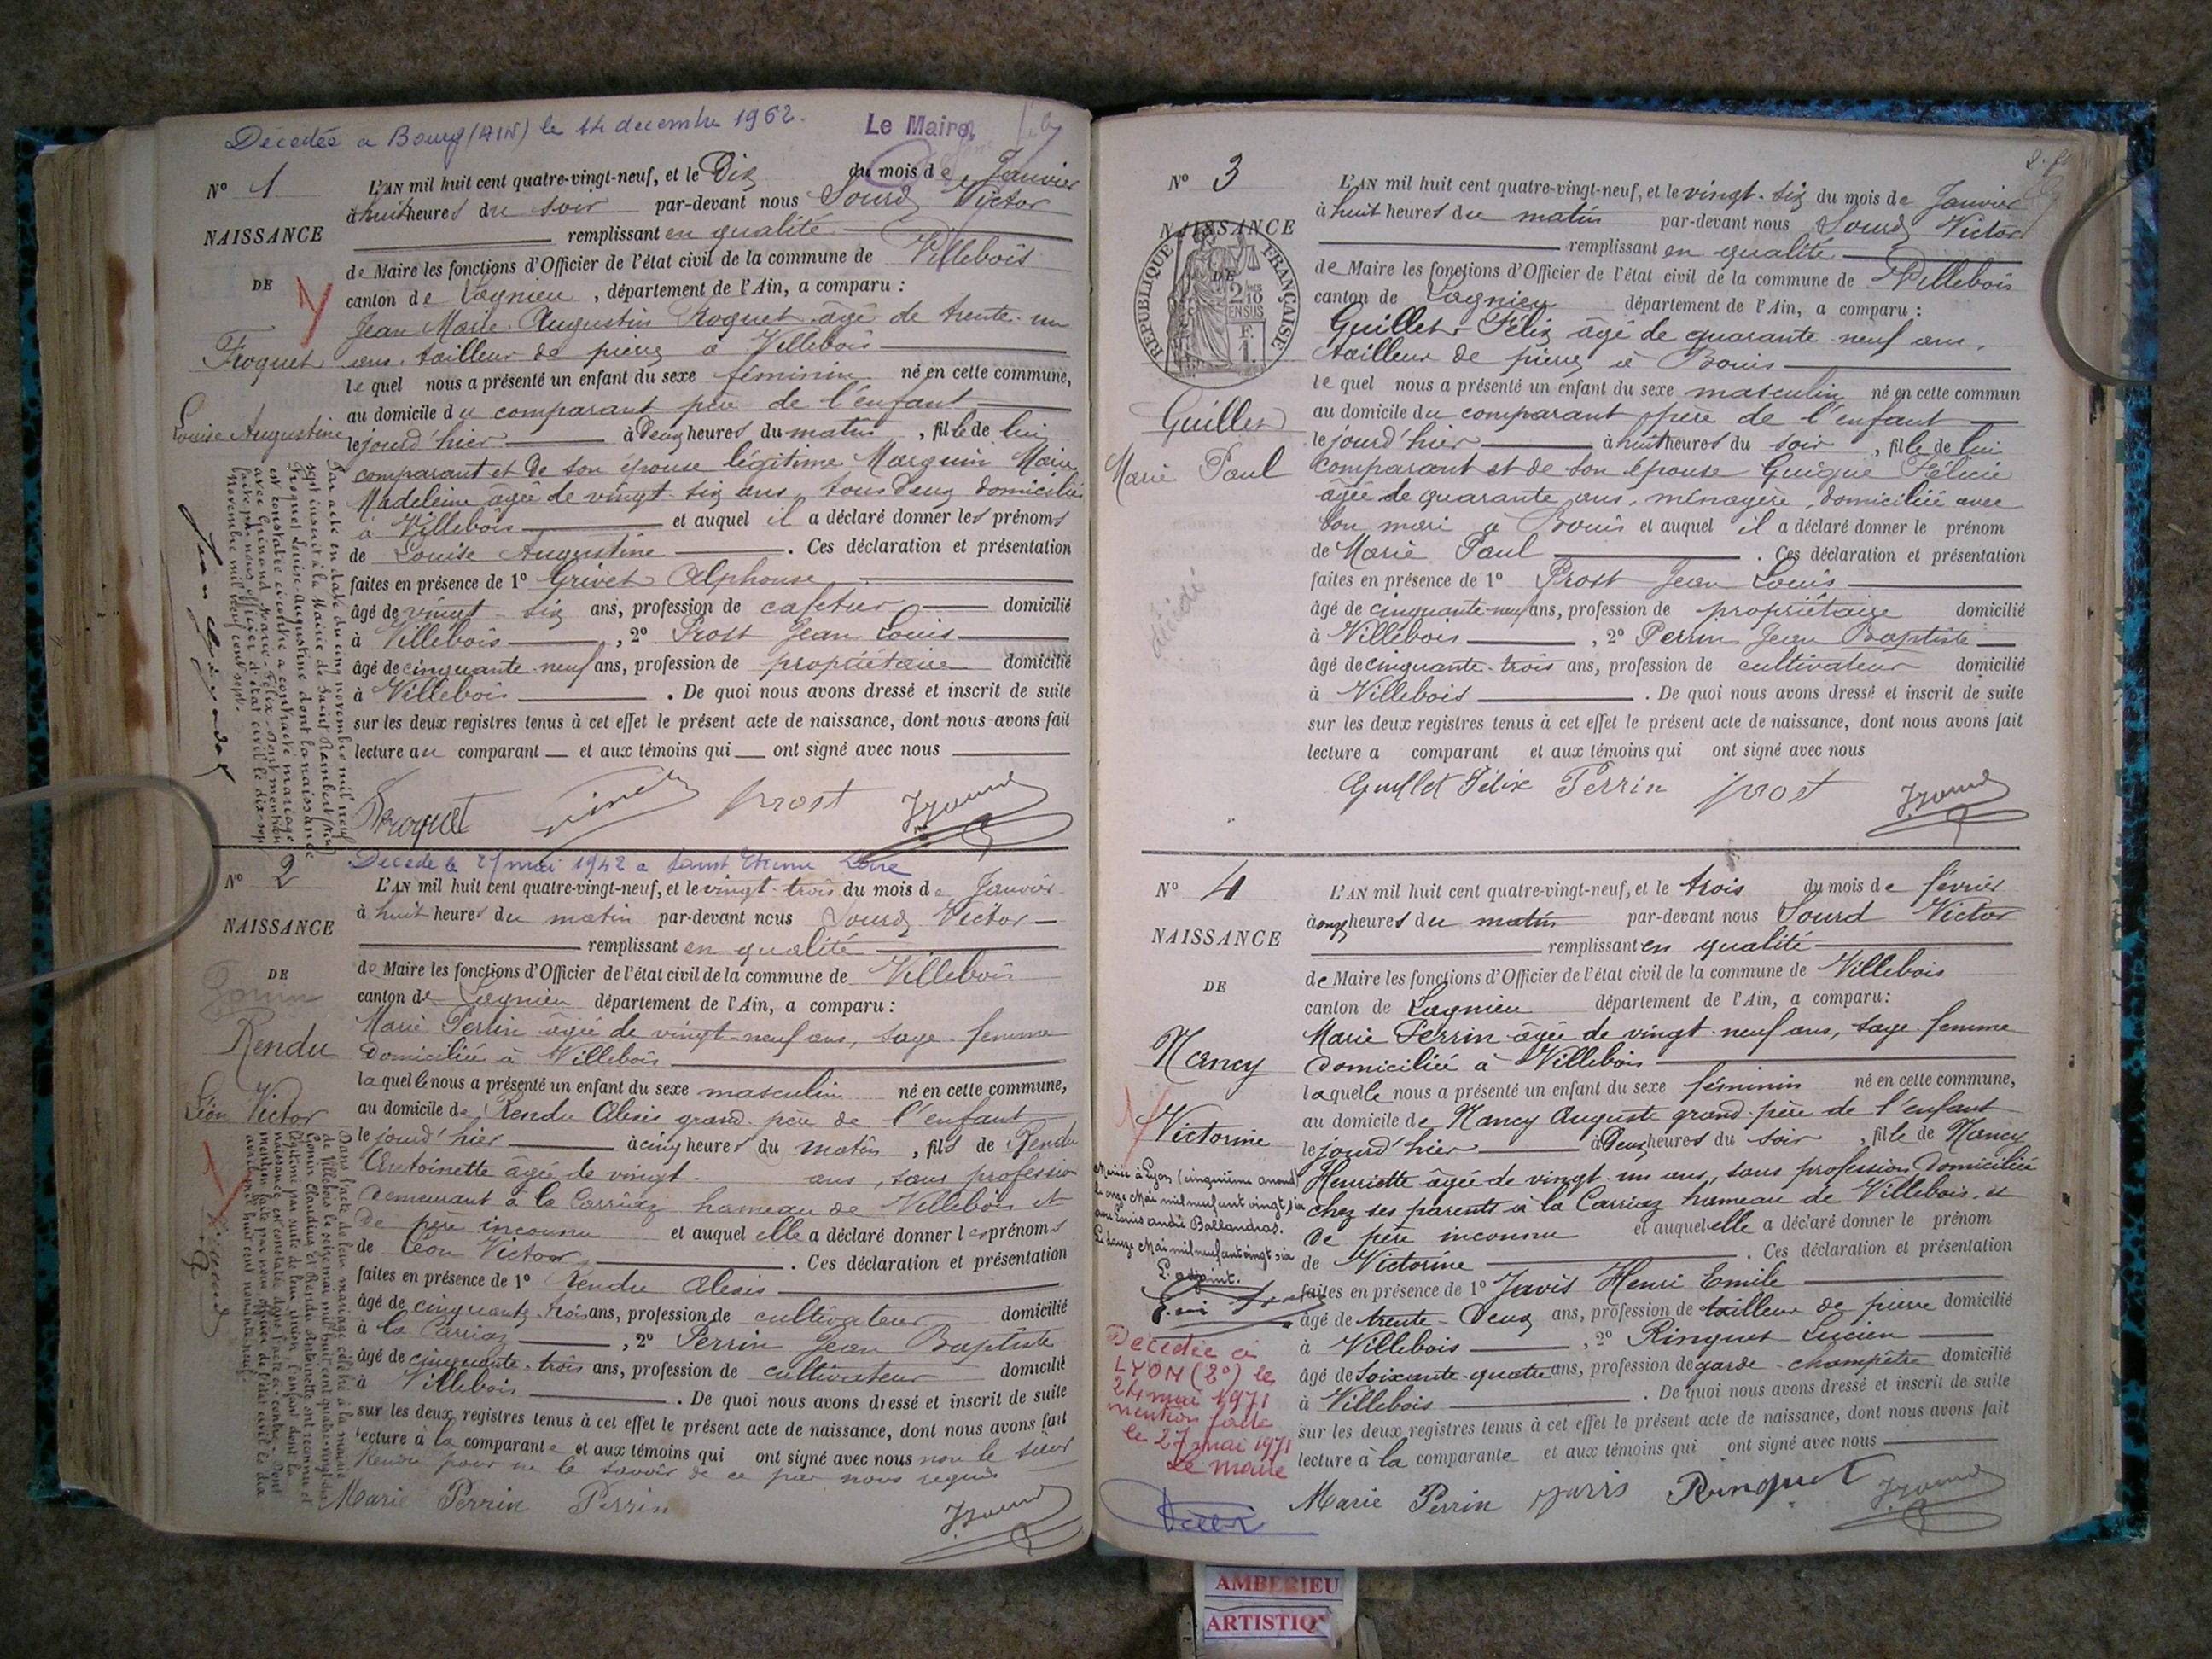 Décédée a Bourg (AIN) le 14 decembre 1962.
Le Maire,
N° 1
NAISSANCE
DE
Froquet
Louise Augustine
L'AN mil huit cent quatre-vingt-neuf, et le Dix du mois de Janvier
à huit heures du soir par-devant nous Sourd Victor
remplissant en qualité
de Maire les fonctions d'Officier de l'état civil de la commune de Villebois
canton de Lagnieu, département de l'Ain, a comparu :
Jean Marie Augustin Froquet âgé de trente-un
ans, tailleur de pierre à Villebois
le quel nous a présenté un enfant du sexe féminin né en cette commune,
au domicile du comparant père de l'enfant
le jourd'hier à Deux heures du matin, fille de lui
comparant et de son épouse légitime Marguin Marie
Madeleine âgée de vingt-six ans, tous deux domiciliés
à Villebois et auquel il a déclaré donner les prénoms
de Louise Augustine . Ces déclaration et présentation
faites en présence de 1° Grivet Alphonse
âgé de vingt-six ans, profession de cafetier domicilié
à Villebois, 2° Prost Jean Louis
âgé de cinquante-neuf ans, profession de propriétaire domicilié
à Villebois . De quoi nous avons dressé et inscrit de suite
sur les deux registres tenus à cet effet le présent acte de naissance, dont nous avons fait
lecture au comparant et aux témoins qui ont signé avec nous
Par acte en date du cinq novembre mil neuf
cent sept inscrit à la Mairie de Saint Rambert
Froquet Louise-Augustine dont la naissance
est constatée ci-contre a contracté mariage
avec Guinand Marie-Félix. Dont mention
faite par nous officier d'état civil le dix-sept
Novembre mil neuf cent sept.
Froquet prost
N° 2
NAISSANCE
DE
Gonin
Rendu
Léon Victor
Décédé le 27 mai 1942 a Saint Etienne Loire
L'AN mil huit cent quatre-vingt-neuf, et le vingt-trois du mois de Janvier
à huit heures du matin par-devant nous Sourd Victor
remplissant en qualité
de Maire les fonctions d'Officier de l'état civil de la commune de Villebois
canton de Lagnieu département de l'Ain, a comparu :
Marie Perrin âgée de vingt-neuf ans, sage-femme
domiciliée à Villebois
laquelle nous a présenté un enfant du sexe masculin né en cette commune,
au domicile de Rendu Alexis grand-père de l'enfant
le jourd'hier à cinq heures du matin, fils de Rendu
Antoinette âgée de vingt ans, sans profession
demeurant à la Carriaz hameau de Villebois et
de père inconnu et auquel elle a déclaré donner les prénoms
de Léon Victor . Ces déclaration et présentation
faites en présence de 1° Rendu Alexis
âgé de cinquante-trois ans, profession de cultivateur domicilié
à la Carriaz, 2° Perrin Jean Baptiste
âgé de cinquante-trois ans, profession de cultivateur domicilié
à Villebois . De quoi nous avons dressé et inscrit de suite
sur les deux registres tenus à cet effet le présent acte de naissance, dont nous avons fait
lecture à la comparante et aux témoins qui ont signé avec nous non le sieur
Rendu pour ne le savoir de ce par nous requis
Marie Perrin Perrin
N° 3
NAISSANCE
DE
REPUBLIQUE FRANÇAISE
2/10 EN SUS
F. 1.
Guillet
Marie Paul
décédé
L'AN mil huit cent quatre-vingt-neuf, et le vingt-six du mois de Janvier
à huit heures du matin par-devant nous Sourd Victor
remplissant en qualité
de Maire les fonctions d'Officier de l'état civil de la commune de Villebois
canton de Lagnieu département de l'Ain, a comparu :
Guillet Félix âgé de quarante-neuf ans,
tailleur de pierre à Bouis
le quel nous a présenté un enfant du sexe masculin né en cette commun
au domicile du comparant père de l'enfant
le jourd'hier à huit heures du soir, fils de lui
comparant et de son épouse Guigue Félicie
âgée de quarante ans, ménagère, domiciliée avec
son mari à Bouis et auquel il a déclaré donner le prénom
de Marie Paul . Ces déclaration et présentation
faites en présence de 1° Prost Jean Louis
âgé de cinquante-neuf ans, profession de propriétaire domicilié
à Villebois, 2° Perrin Jean Baptiste
âgé de cinquante-trois ans, profession de cultivateur domicilié
à Villebois . De quoi nous avons dressé et inscrit de suite
sur les deux registres tenus à cet effet le présent acte de naissance, dont nous avons fait
lecture a comparant et aux témoins qui ont signé avec nous
Guillet Félix Perrin prost
N° 4
NAISSANCE
DE
Nancy
Victorine
Mariée à Lyon (cinquième arrond)
le onze Mai mil neuf cent vingt six
avec Louis André Ballandras.
Le douze Mai mil neuf cent vingt six
L'adjoint.
Décédée à
LYON (2°) le
24 mai 1971
mention faite
le 27 mai 1971
Le maire
L'AN mil huit cent quatre-vingt-neuf, et le trois du mois de février
à onze heures du matin par-devant nous Sourd Victor
remplissant en qualité
de Maire les fonctions d'Officier de l'état civil de la commune de Villebois
canton de Lagnieu département de l'Ain, a comparu:
Marie Perrin âgée de vingt-neuf ans, sage-femme
domiciliée à Villebois
laquelle nous a présenté un enfant du sexe féminin né en cette commune,
au domicile de Nancy Auguste grand-père de l'enfant
le jourd'hier à Deux heures du soir, fille de Nancy
Henriette âgée de vingt-un ans, sans profession domiciliée
chez ses parents à la Carriaz hameau de Villebois et
de père inconnu et auquel elle a déclaré donner le prénom
de Victorine . Ces déclaration et présentation
faites en présence de 1° Javis Henri Emile
âgé de trente-Deux ans, profession de tailleur de pierre domicilié
à Villebois, 2° Ringuet Lucien
âgé de soixante-quatre ans, profession de garde-champêtre domicilié
à Villebois . De quoi nous avons dressé et inscrit de suite
sur les deux registres tenus à cet effet le présent acte de naissance, dont nous avons fait
lecture à la comparante et aux témoins qui ont signé avec nous
Marie Perrin Ringuet
AMBERIEU
ARTISTIQ